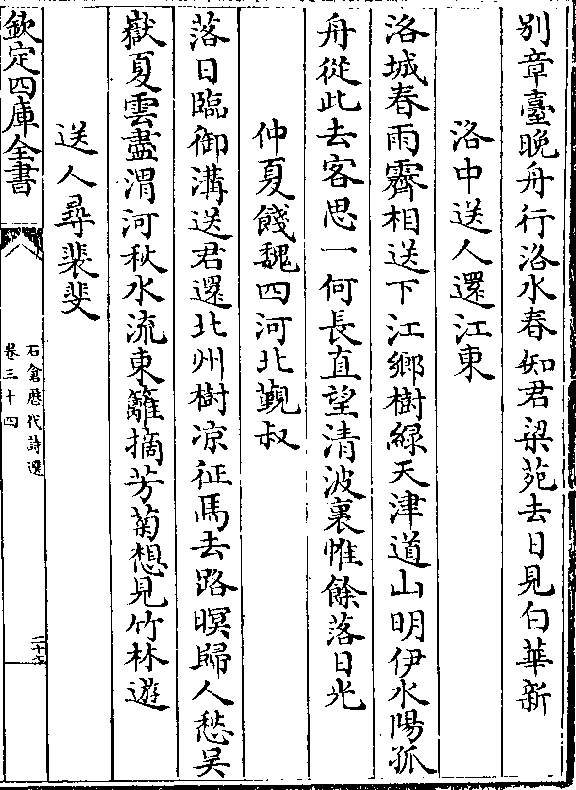 別章臺晚舟行洛水春知君梁苑去日見白華新
洛中送人還江東
洛城春雨霽相送下江鄉樹緑天津道山明伊水陽孤
舟從此去客思一何長直望清波裏惟餘落日光
仲夏餞魏四河北覲叔
落日臨御溝送君還北州樹凉征馬去路暝歸人愁吴
嶽夏雲盡渭河秋水流東籬摘芳菊想見竹林遊
送人尋裴斐
欽定四庫全書
石倉歴代詩選
卷三十四
二十六